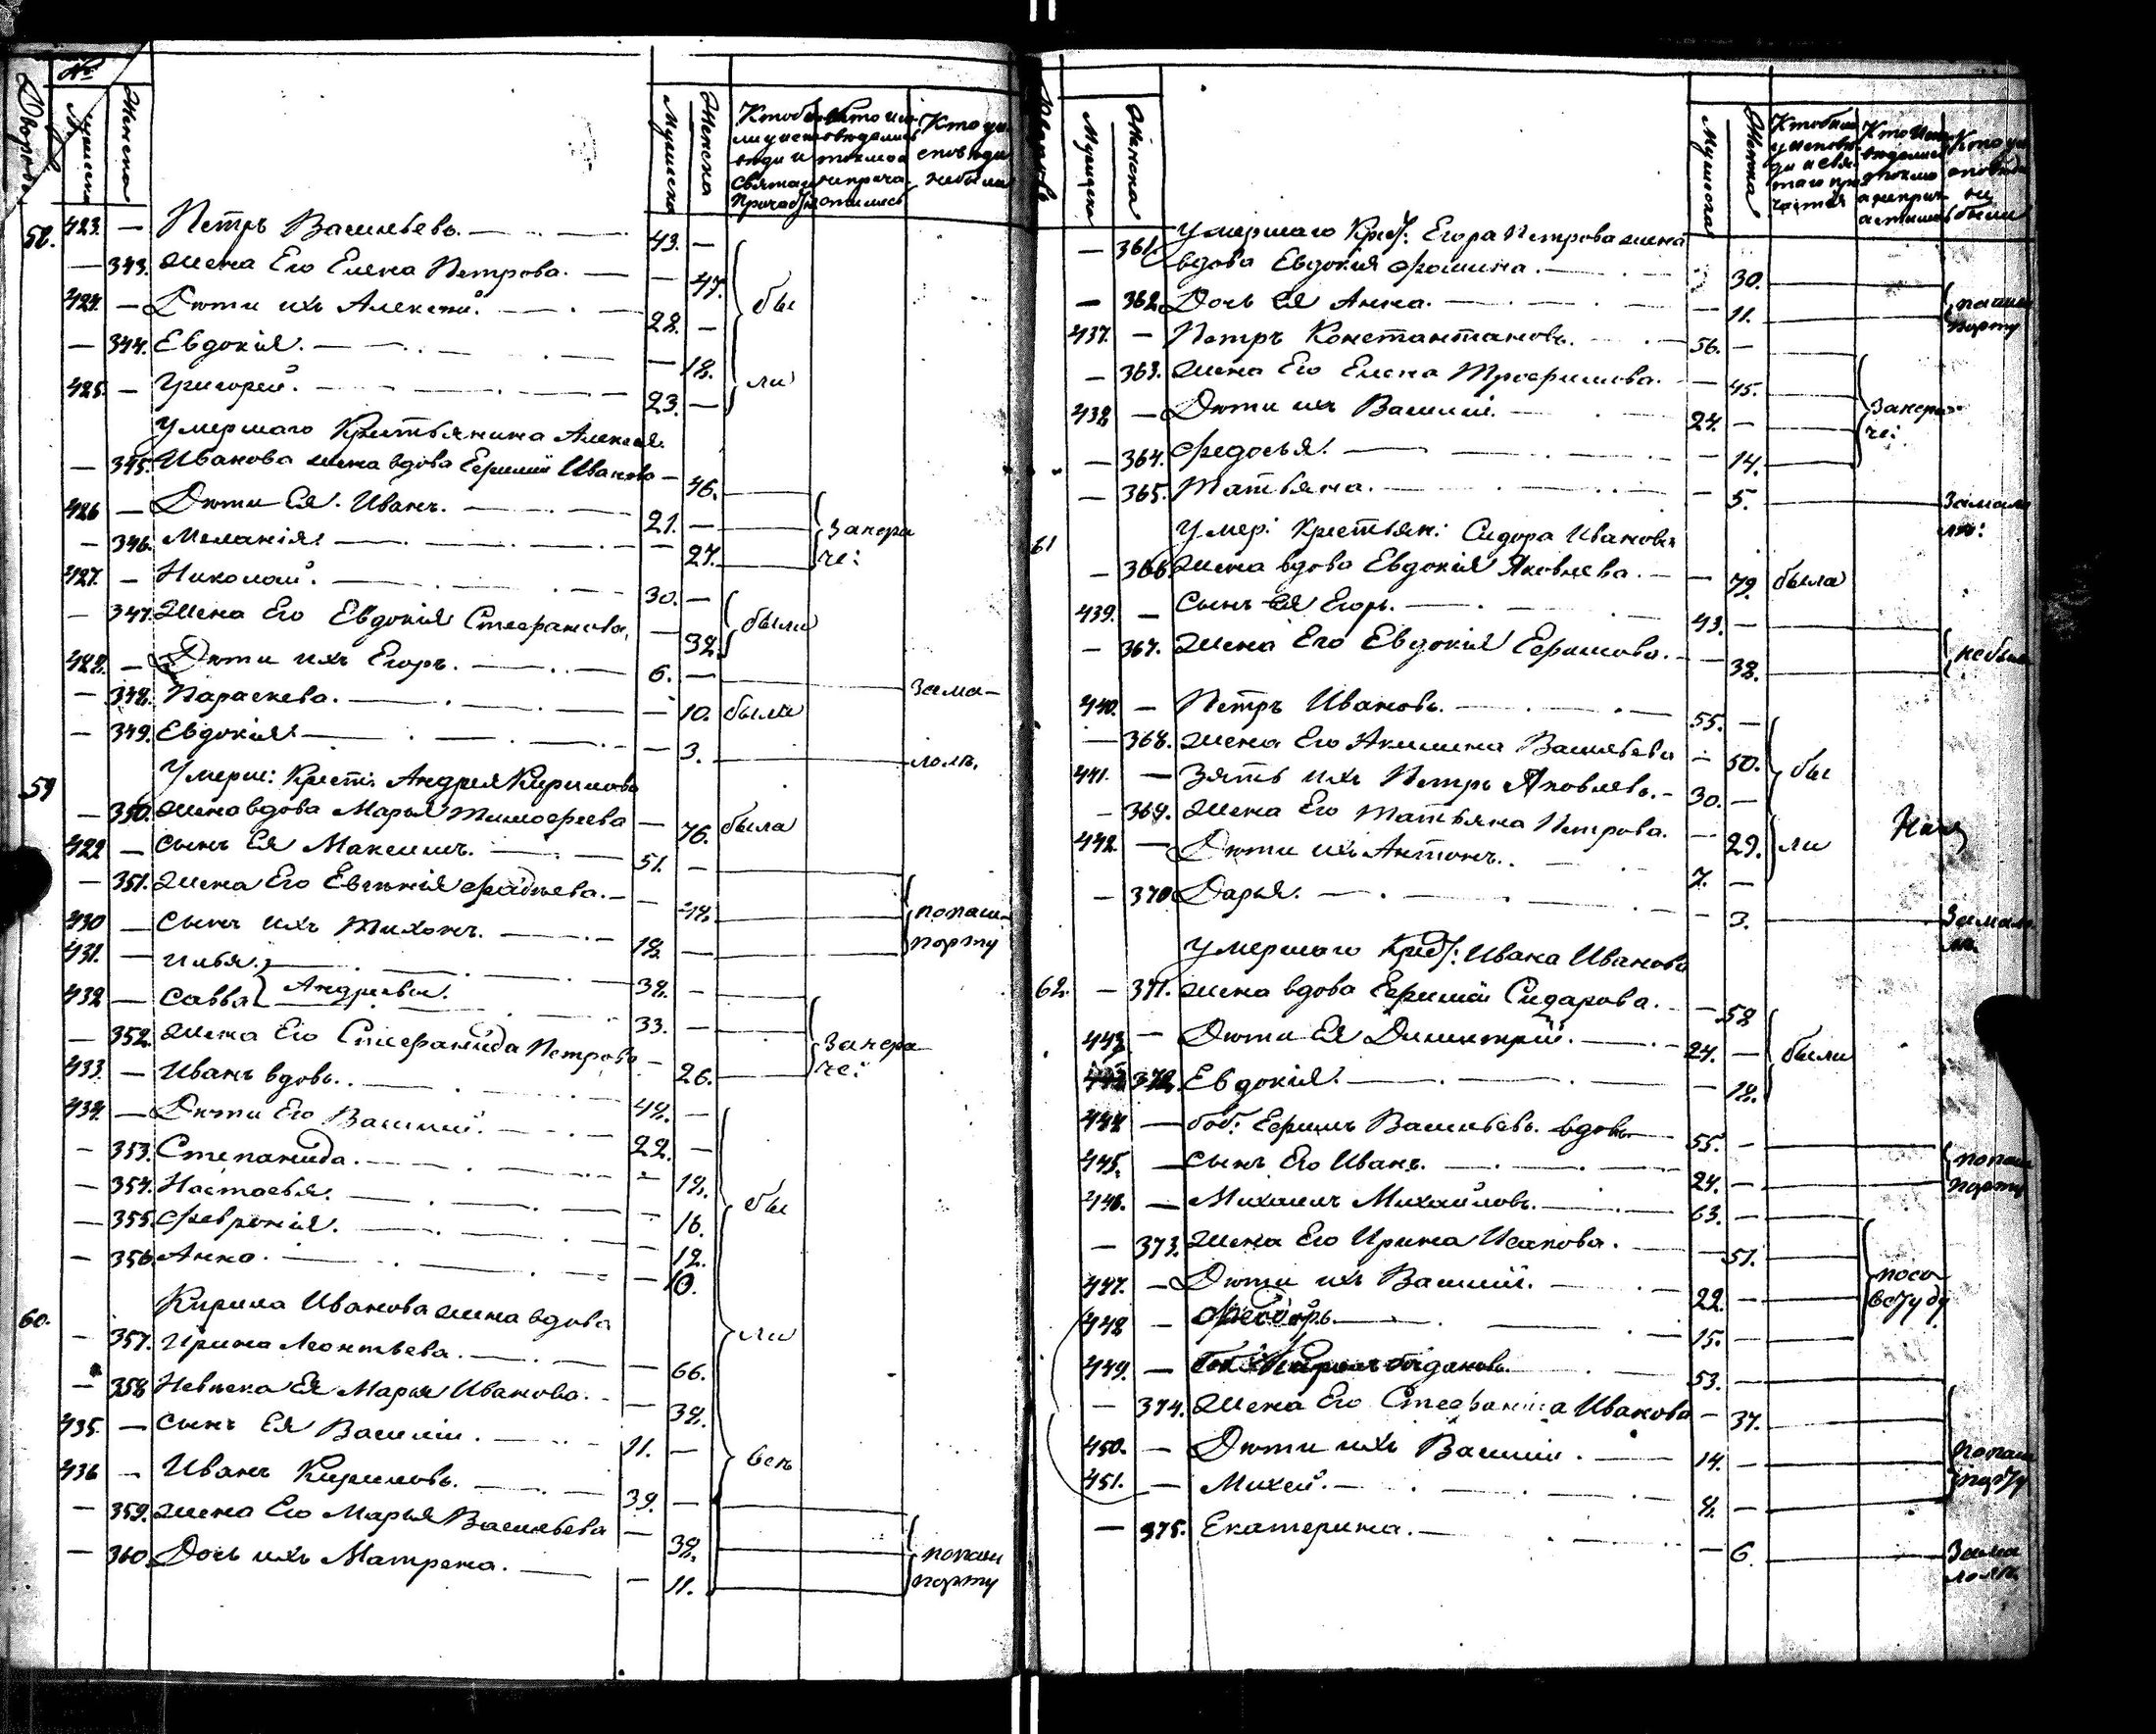 №
Дворовъ Мужеска Женска Мужеска Женска
Кто были у исповеди и святаго причастия
Кто исповедались токмо а не причастились
Кто у исповеди не были
58. 423. — Петръ Васильевъ. 43. —
— 343. жена Его Елена Петрова. — 47. бы
424. — Дѣти ихъ Алексей. 28. —
— 344. Евдокія. — 18. ли
425. — Григорей. 23. —
Умершаго Крестьянина Алексея
— 345. Иванова жена вдова Ефимія Иванова — 46.
426 — Дѣти Ея Иванъ. 21. — Занера
— 346. Меланія. — 27. че:
427. — Николай. 30. —
— 347. жена Его Евдокія Стефанова, — 32. были
428. — Дѣти ихъ Егоръ. 6. — Зама-
— 348. Параскева. — 10. была
— 349. Евдокія. — 3. лолѣ.
59 Умерш: Крест: Андрея Кирилова
— 350. жена вдова Марья Тимофеева — 76. была
429 — сынъ Ея Максимъ. 51. —
— 351. жена Его Евгенія Фадѣева. — 48. попаш-
430 — сынъ ихъ Тихонъ. 18. — порту
431. — Илья. 38. —
432 — Савва Андреевы. 33. —
— 352. жена Его Стефанида Петрова — 26. Занера
433. — Иванъ вдовъ. 48. — че:
434. — Дѣти Его Василий. 22. —
— 353. Степанида. — 18.
— 354. Настасья. — 16. бы
— 355. Феврония. — 12.
— 356. Анна. — 10.
60. Кирила Иванова жена вдова
— 357. Ирина Леонтьева. — 66. ли
— 358 Невѣска Ея Марья Иванова. — 38.
435. — сынъ Ея Василій. 11. — всѣ
436 — Иванъ Кириловъ. 39. —
— 359. жена Его Марья Васильева — 38. попаш
— 360. Дочь ихъ Матрена. — 11. порту
Дворовъ Мужеска Женска Мужеска Женска
Кто были у исповеди и святаго причастия
Кто исповедались токмо а не причастились
Кто у исповеди не были
Умершаго Крес: Егора Петрова жена
— 361. вдова Евдокія Фомина. — 30.
— 362. Дочь Ея Анна. — 11. попаш порту
437. — Петръ Константиновъ. 56. —
— 363. жена Его Елена Трофимова. — 45.
438 — Дѣти ихъ Василій. 24. — Занера
— 364. Федосья. — 14. че:
— 365. Татьяна. — 5. Замало
61 Умер: Крестьян: Сидора Иванова лѣ:
— 366. жена вдова Евдокія Яковлева. — 79. была
439. — сынъ Ея Егоръ. 43. —
— 367. жена Его Евдокія Ефимова. — 38. небыли
440. — Петръ Ивановъ. 55. —
— 368. жена Его Акилина Васильева — 50. бы
441. — Зять ихъ Петръ Яковлевъ. 30. —
— 369. жена Его Татьяна Петрова. — 29. ли
442. — Дѣти ихъ Антонъ. 7. —
— 370 Дарья. — 3. Замало
Умершаго Крес: Ивана Иванова
62. — 371. жена вдова Ефимія Сидарова. — 58
443. — Дѣти Ея Димитрій. 24. — были
372. Евдокія. — 18.
444 — боб: Ефимъ Васильевъ вдовъ 55. —
445. — сынъ Его Иванъ. 24. — попаш порту
446. — Михаилъ Михайловъ. 63. —
— 373. жена Его Ирина Исакова. — 51.
447. — Дѣти ихъ Василій. 22. —
448 — Федоръ. 15. —
449. — 53. —
— 374. жена Его Стефанида Иванова — 37.
450. — Дѣти ихъ Василій. 14. — попаш
451. — Михей. 8. — порту
— 375. Екатерина. — 6. Зама лолѣ.